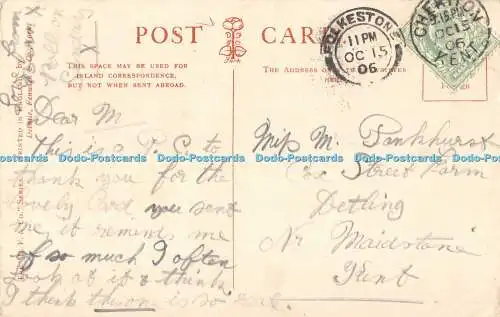 POST CARD
THIS SPACE MAY BE USED FOR
INLAND CORRESPONDENCE,
BUT NOT WHEN SENT ABROAD.
THE ADDRESS
FOLKESTONE
11 PM
OC 15
06
CHERITON
OC 15
06
KENT
Dear M
This is a P.C to
thank you for the
lovely Card you sent
me, it reminds me
of so much I often
look at it & think
I think the one is so
Miss M. Pankhurst
Street Farm
Detling
Nr Maidstone
Kent
Dodo-Postcards Dodo-Postcards Dodo-Postcards Dodo-Postcards